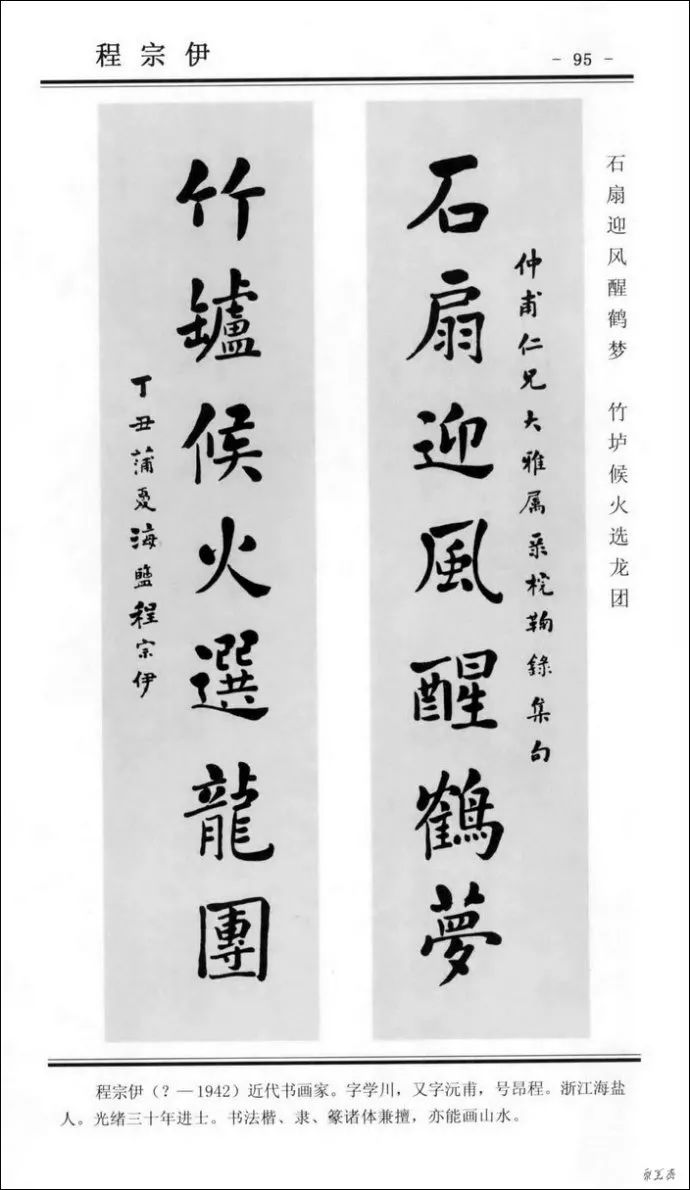 程宗伊
- 95 -
石扇迎风醒鹤梦 竹垆候火选龙团
仲甫仁兄大雅属
石扇迎風醒鶴夢
竹鑪候火選龍團
丁丑蒲夏海鹽程宗伊
程宗伊（？—1942）近代书画家。字学川，又字沅甫，号昂程。浙江海盐
人。光绪三十年进士。书法楷、隶、篆诸体兼擅，亦能画山水。